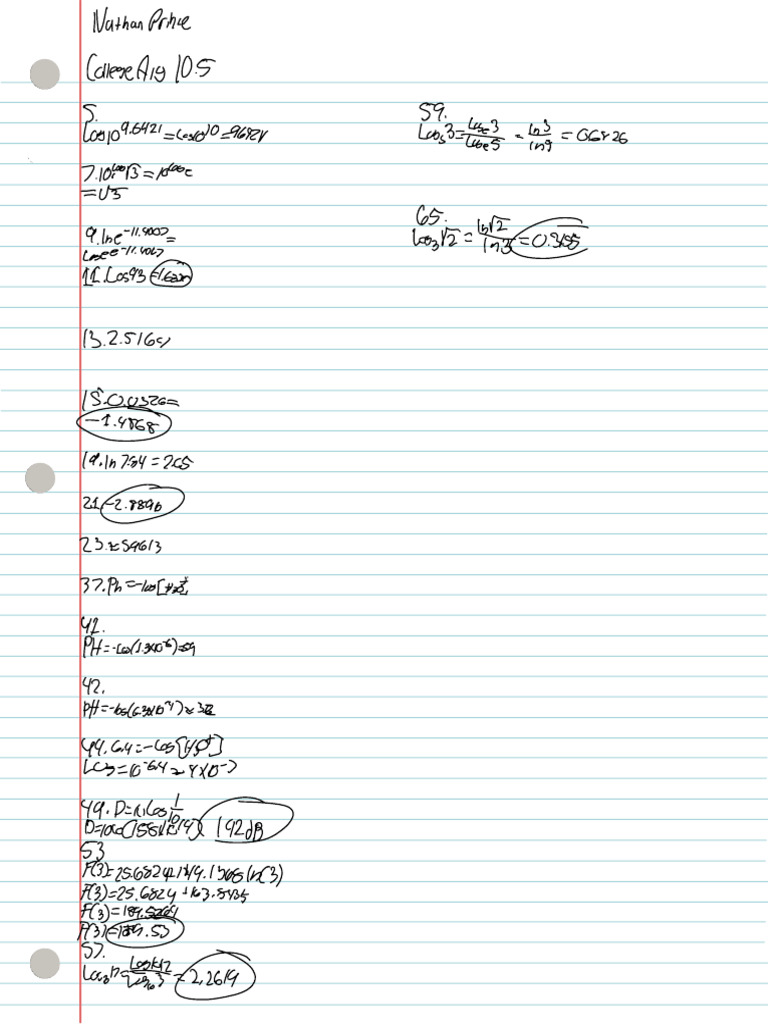 Nathan Prince
College Alg 10.5
5.
Log10^9.6421 = Log10^10 = 9.6421
7. 10^log√3 = 10^loge
= √3
9. lne^-11.4007 =
Logee^-11.4007
11. Log43 = 1.6335
13. 2.5164
15. 0.0326 =
-1.4868
19. ln 7.84 = 2.05
21. -2.8896
23. ≈ 59613
37. Ph = -log[H3O+]
41.
PH = -Log(1.3x10^-6) = 5.9
42.
PH = -log(6.3x10^-4) ≈ 3.2
44. 6.4 = -Log[H3O+]
= 10^-6.4 ≈ 4x10^-7
49. D = 10 Log I/I0
192 dB
53
F(3) = 25.6824 + 149.1368 ln(3)
F(3) = 25.6824 + 163.8435
F(3) = 189.5264
F(3) = 189.53
57.
Log3 12 = Log10 12/Log10 3 = 2.2619
59.
Log5 3 = Loge 3/Loge 5 = ln3/ln5 = 0.6826
65.
Log3 √2 = ln√2/ln3 = 0.3155